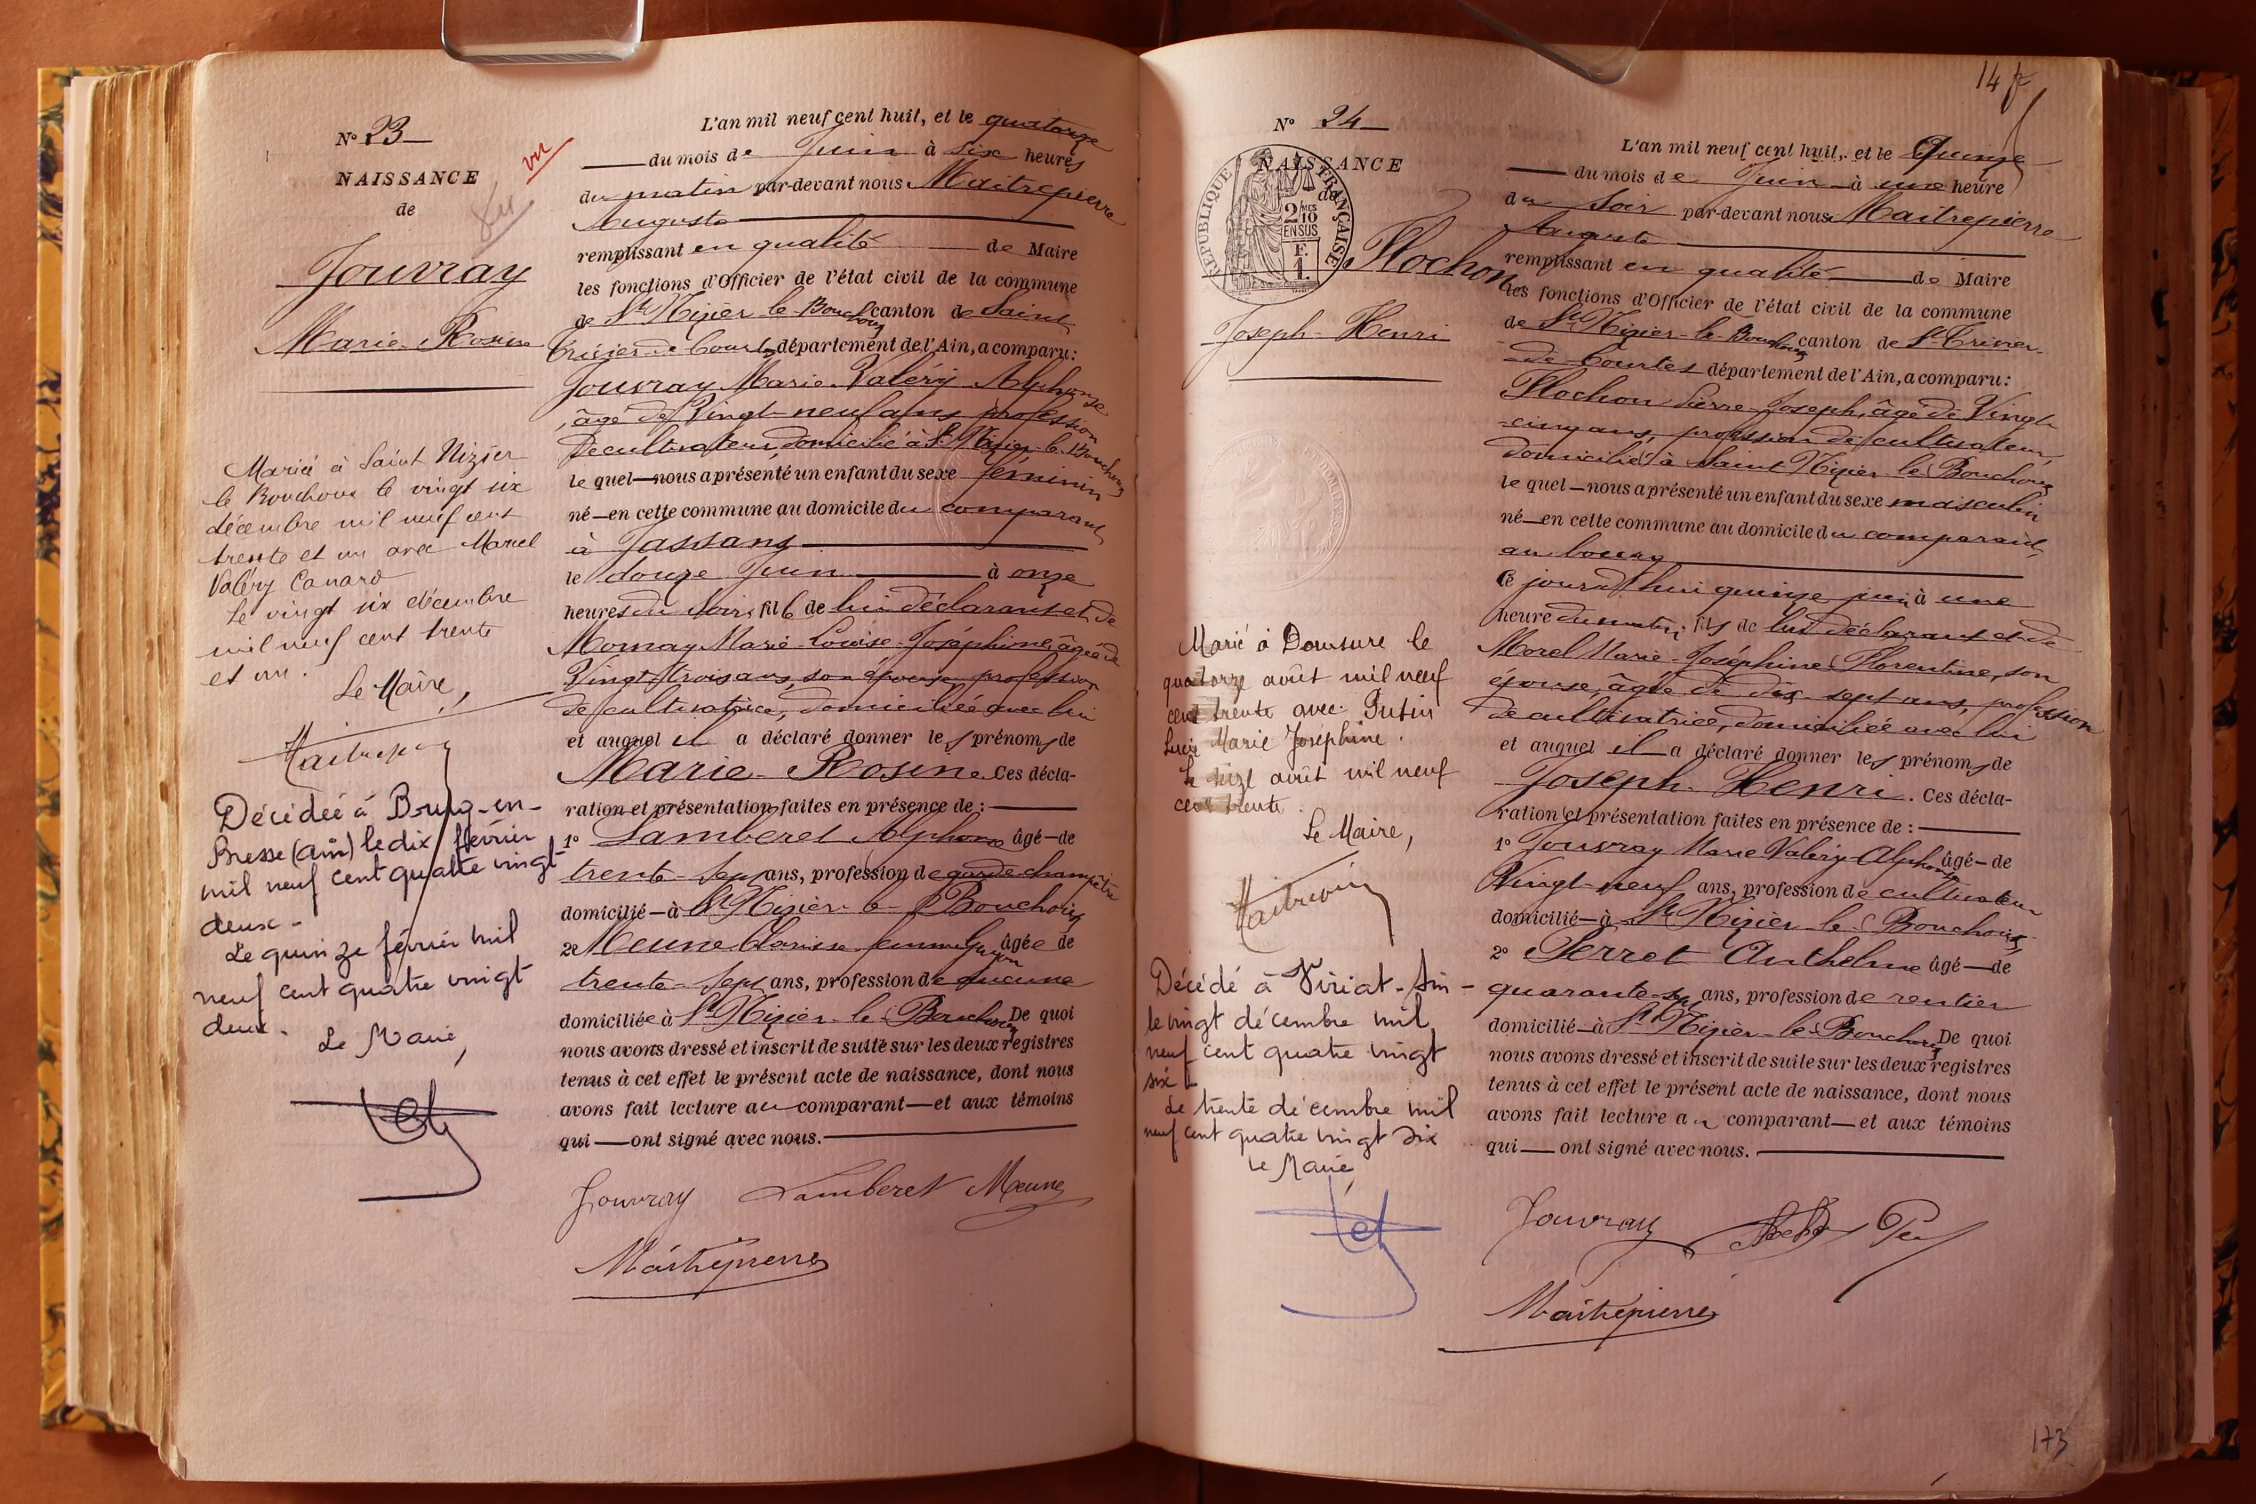 N° 23
NAISSANCE
de
Jouvray
Marie-Rosine
vu
Mariée à Saint Nizier
le Bouchoux le vingt six
décembre mil neuf cent
trente et un avec Marcel
Valéry Canard
Le vingt six décembre
mil neuf cent trente
et un.
Le Maire,
Décédée à Bourg-en-
Bresse (Ain) le dix février
mil neuf cent quatre vingt
deux-
Le quinze février mil
neuf cent quatre vingt
deux.
Le Maire,
L'an mil neuf cent huit, et le quatorze
du mois de Juin à six heures
du matin par-devant nous Maitrepierre
Auguste
remplissant en qualité de Maire
les fonctions d'Officier de l'état civil de la commune
de St Nizier-le-Bouchoux canton de Saint
Trivier-de-Courtes département de l'Ain, a comparu :
Jouvray Marie-Valéry-Alphonse
âgé de Vingt-neuf ans, profession
de cultivateur, domicilié à St Nizier-le-Bouchoux
le quel nous a présenté un enfant du sexe féminin
né en cette commune au domicile du comparant
à Jassans
le douze Juin à onze
heures du Soir, fille de lui déclarant et de
Mornay Marie-Louise-Joséphine, âgée de
Vingt trois ans, son épouse, profession
de cultivatrice, domiciliée avec lui
et auquel il a déclaré donner les prénoms de
Marie-Rosine. Ces décla-
ration et présentation faites en présence de :
1° Lamberet Alphonse âgé de
trente-sept ans, profession de garde-champêtre
domicilié à St Nizier-le-Bouchoux
2° Meune Clarisse femme âgée de
trente-sept ans, profession de aucune
domiciliée à St Nizier-le-Bouchoux De quoi
nous avons dressé et inscrit de suite sur les deux registres
tenus à cet effet le présent acte de naissance, dont nous
avons fait lecture au comparant et aux témoins
qui ont signé avec nous.
Jouvray Lamberet Meune
Maitrepierre
147
N° 24
NAISSANCE
de
RÉPUBLIQUE FRANÇAISE
2 MES
10
EN SUS
F.
1.
Plochon
Joseph-Henri
Marié à Domsure le
quatorze août mil neuf
cent trente avec Putin
Lucie Marie Joséphine.
Le seize août mil neuf
cent trente.
Le Maire,
Décédé à Viriat-Ain-
le vingt décembre mil
neuf cent quatre vingt
six
Le trente décembre mil
neuf cent quatre vingt six
Le Maire,
L'an mil neuf cent huit, et le Quinze
du mois de Juin à une heure
du soir par-devant nous Maitrepierre
Auguste
remplissant en qualité de Maire
les fonctions d'Officier de l'état civil de la commune
de St Nizier-le-Bouchoux canton de St Trivier-
de Courtes département de l'Ain, a comparu :
Plochon Pierre-Joseph, âgé de Vingt-
-cinq ans, profession de cultivateur,
domicilié à Saint Nizier-le-Bouchoux
le quel nous a présenté un enfant du sexe masculin
né en cette commune au domicile du comparant,
au bourg
Ce jourd'hui quinze juin à une
heure du matin, fils de lui déclarant et de
Morel Marie-Joséphine Florentine, son
épouse, âgée de dix-sept ans, profession
de cultivatrice, domiciliée avec lui
et auquel il a déclaré donner les prénoms de
Joseph-Henri. Ces décla-
ration et présentation faites en présence de :
1° Jouvray Marie Valéry-Alphonse âgé de
Vingt-neuf ans, profession de cultivateur
domicilié à St Nizier-le-Bouchoux
2° Perret Anthelme âgé de
quarante-six ans, profession de rentier
domicilié à St Nizier-le-Bouchoux De quoi
nous avons dressé et inscrit de suite sur les deux registres
tenus à cet effet le présent acte de naissance, dont nous
avons fait lecture au comparant et aux témoins
qui ont signé avec nous.
Jouvray
Maitrepierre
173